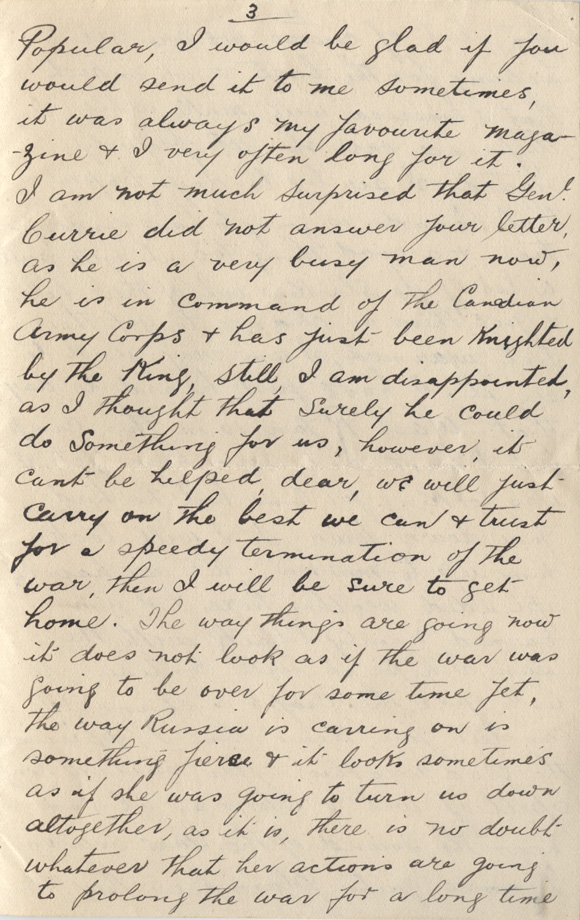 3
Popular, I would be glad if you
would send it to me sometimes,
it was always my favourite maga-
-zine & I very often long for it.
I am not much surprised that Genl.
Currie did not answer your letter,
as he is a very busy man now,
he is in command of the Canadian
Army Corps & has just been Knighted
by the King, still, I am disappointed,
as I thought that surely he could
do something for us, however, it
cant be helped, dear, we will just
carry on the best we can & trust
for a speedy termination of the
war, then I will be sure to get
home. The way things are going now
it does not look as if the war was
going to be over for some time yet,
the way Russia is carring on is
something fierce & it looks sometimes
as if she was going to turn us down
altogether, as it is, there is no doubt
whatever that her actions are going
to prolong the war for a long time